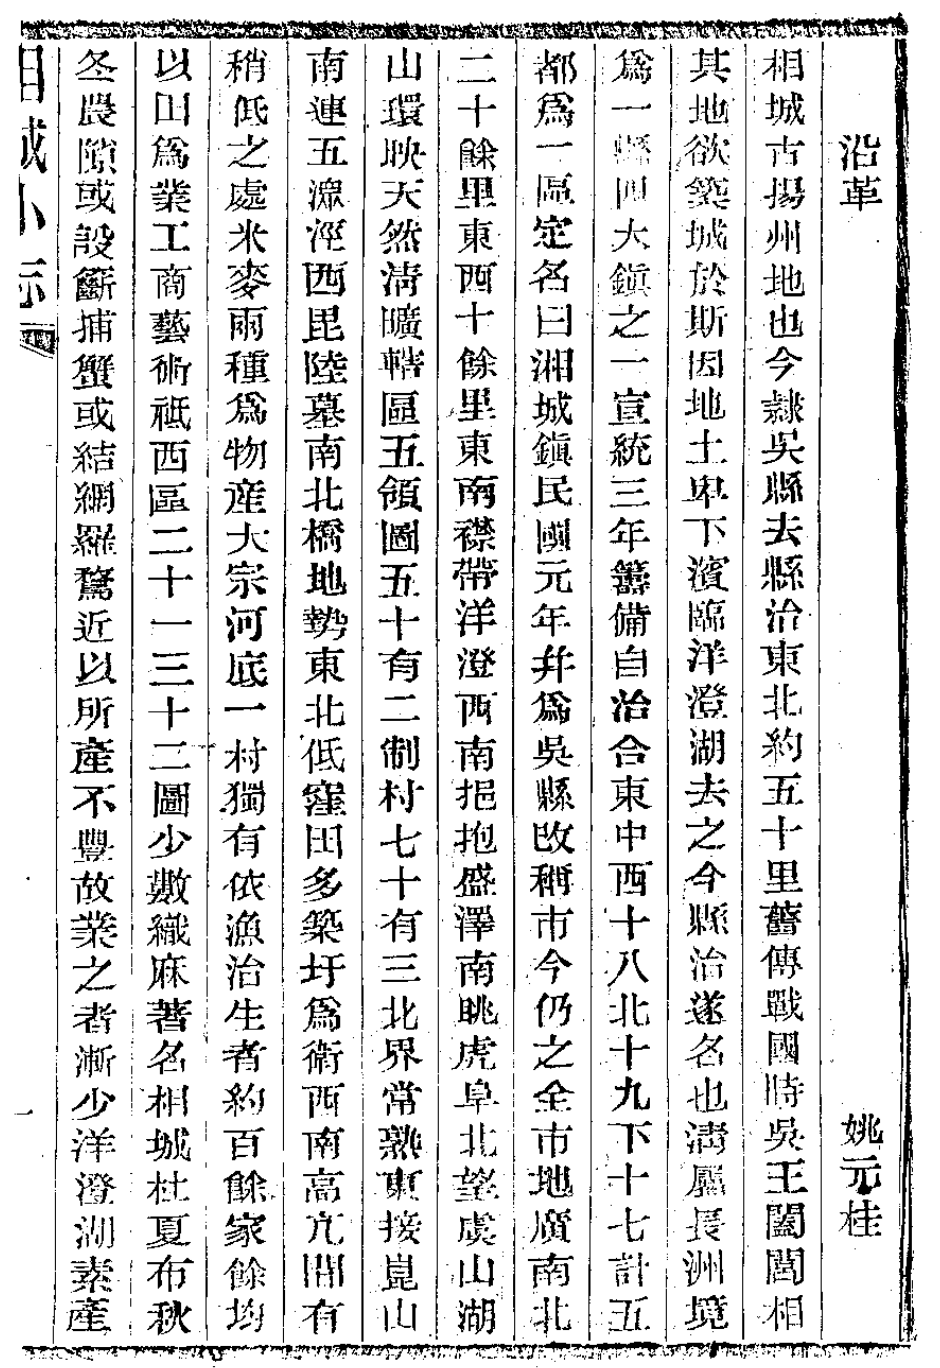 沿革　姚元桂
相城古揚州地也今隸吳縣去縣治東北約五十里舊傳戰國時吳王闔閭相
其地欲築城於斯因地土卑下濱臨洋澄湖去之今縣治遂名也淸屬長洲境
爲一縣四大鎭之一宣統三年籌備自治合東中西十八北十九下十七計五
都爲一區定名曰湘城鎭民國元年幷爲吳縣改稱市今仍之全市地廣南北
二十餘里東西十餘里東南襟帶洋澄西南挹抱盛澤南眺虎阜北望虞山湖
山環映天然淸曠轄區五領圖五十有二制村七十有三北界常熟東接崑山
南連五潨涇西毘陸墓南北橋地勢東北低窪田多築圩爲衛西南高亢間有
稍低之處米麥兩種爲物產大宗河底一村獨有依漁治生者約百餘家餘均
以田爲業工商藝術祗西區二十一三十二圖少數織麻著名相城杜夏布秋
冬農隙或設籪捕蟹或結網羅騖近以所產不豐故業之者漸少洋澄湖素產
相城小志
一